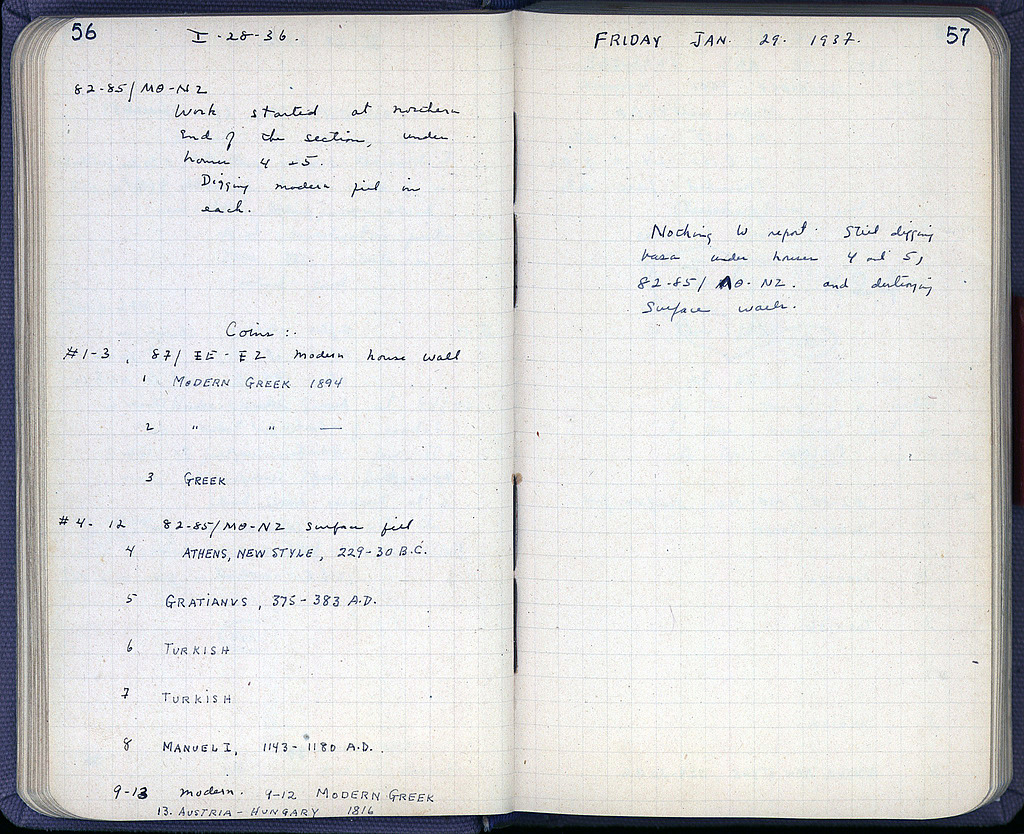 56
I-28-36.
82-85/ΜΘ-ΝΖ
Work started at northern
End of the section, under
houses 4 + 5.
Digging modern fill in
each.
Coins :.
#1-3, 87/ΞΕ-ΞΖ Modern house wall
1 MODERN GREEK 1894
2 " " —
3 GREEK
#4-12 82-85/ΜΘ-ΝΖ surface fill
4 ATHENS, NEW STYLE, 229-30 B.C.
5 GRATIANVS, 375-383 A.D.
6 TURKISH
7 TURKISH
8 MANUEL I, 1143-1180 A.D..
9-13 modern. 9-12 MODERN GREEK
13. AUSTRIA-HUNGARY 1816
FRIDAY JAN. 29. 1937.
57
Nothing to report. Still digging
under houses 4 and 5,
82-85/ΜΘ-ΝΖ. and destroying
Surface walls.